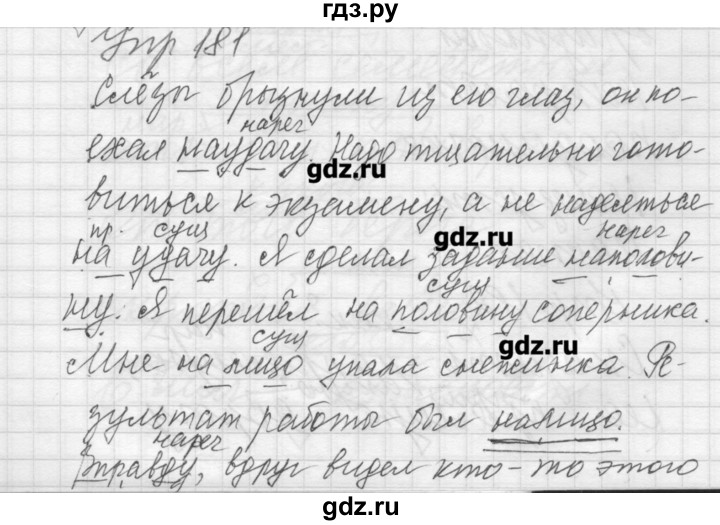 гдз.ру
Упр 181
Слёзы брызнули из его глаз, он по-
нареч
ехал наудачу. Надо тщательно гото-
gdz.ru
виться к экзамену, а не надеяться
пр. сущ нареч
gdz.ru
на удачу. Я сделал задание наполови-
сущ
ну. Я перешёл на половину соперника.
сущ
gdz.ru
Мне на лицо упала снежинка. Ре-
зультат работы был налицо.
нареч
Вправду, вдруг видел кто-то этого
gdz.ru